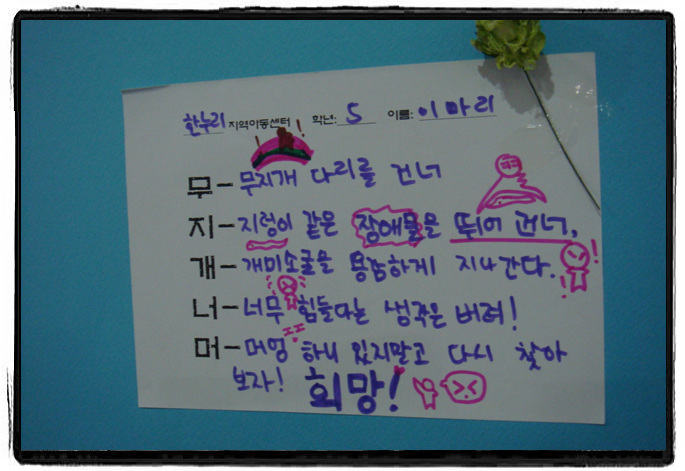 한누리 지역아동센터 학년: 5 이름: 이마리
무-무지개 다리를 건너
지-지렁이 같은 장애물을 뛰어 건너,
개-개미소굴을 용감하게 지나간다.
너-너무 힘들다는 생각은 버려!
머-머엉 하니 있지말고 다시 찾아
보자! 희망!